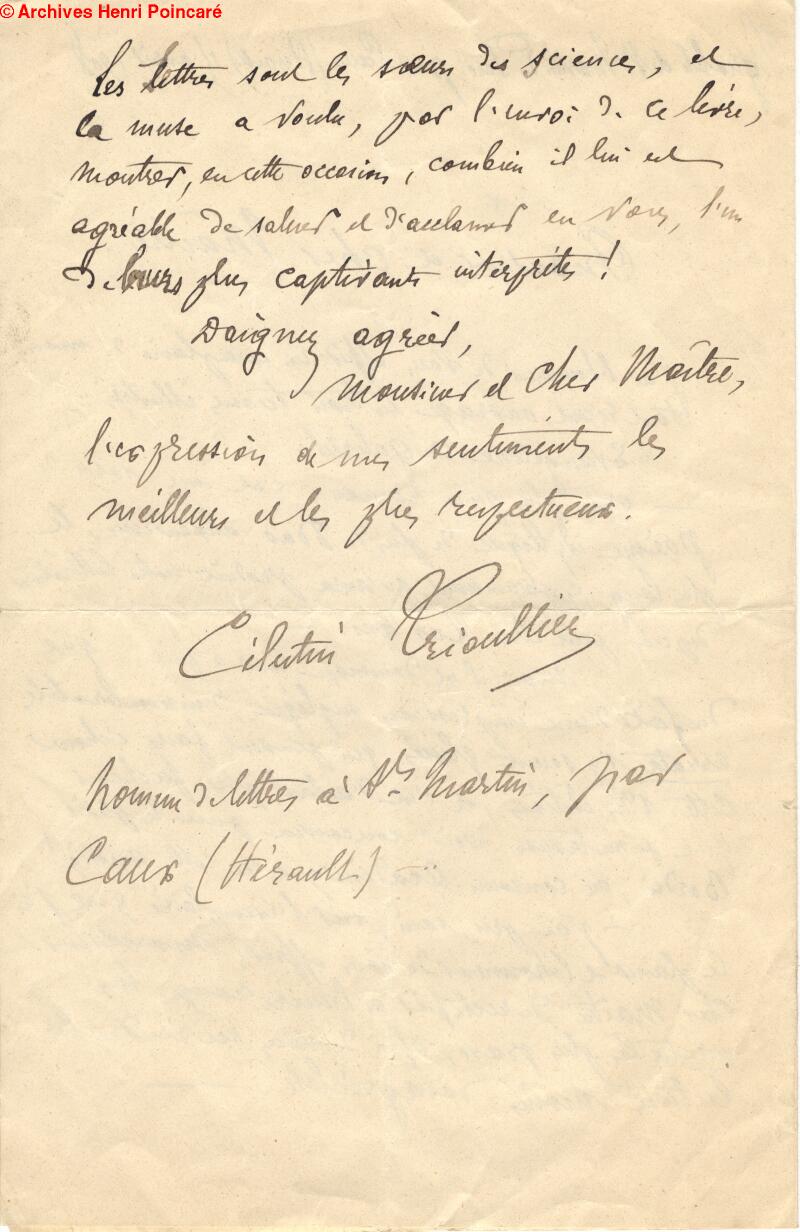 © Archives Henri Poincaré
Les lettres sont les sœurs des sciences, et
la muse a voulu, par l'envoi de ce livre,
montrer, en cette occasion, combien il lui est
agréable de saluer et d'acclamer en vous, l'un
de leurs plus captivants interprètes !
Daignez agréer,
Monsieur et Cher Maître,
l'expression de mes sentiments les
meilleurs et les plus respectueux.
Célestin Trioullier
homme de lettres à Martin, par
Caux (Hérault)